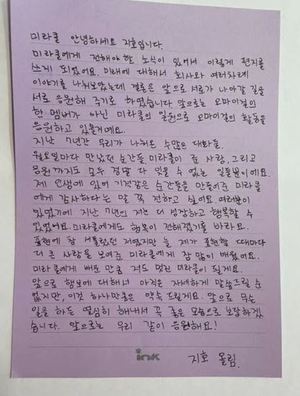 미라클 안녕하세요 지호입니다.
미라클에게 전해야 할 소식이 있어서 이렇게 편지를
쓰게 되었어요. 미래에 대해서 회사와 여러차례
이야기를 나눠보았는데 결론은 앞으로 서로가 나아갈 길을
서로 응원해 주기로 하였습니다. 앞으로는 오마이걸의
한 멤버가 아닌 미라클의 일원으로 오마이걸의 활동을
응원하고 있을거예요.
지난 7년간 우리가 나눠온 수많은 대화들.
웃으면서 만났던 순간들 미라클이 준 사랑, 그리고
응원까지도 모두 정말 다 잊을 수 없는 일들뿐이예요.
제 인생에 있어 기적같은 순간들을 만들어준 미라클
에게 감사하다는 말 꼭 전하고 싶어요 여러분이
있었기에 지난 7년의 저는 더 성장하고 행복할 수
있었어요. 미라클에게도 행복이 전해졌기를 바라요.
표현에 참 서툴렀던 저였지만 늘 제가 표현할 때마다
더 큰 사랑을 보여준 미라클에게 참 많이 배웠어요.
미라클에게 배운 만큼 저도 멋진 미라클이 될게요.
앞으로 행보에 대해서 아직은 자세하게 말씀드릴 순
없지만, 이것 하나만큼은 약속 드릴게요. 앞으로 무슨
일을 하든 열심히 해내서 꼭 좋은 모습으로 보답하겠
습니다. 앞으로는 우리 같이 응원해요!
지호 올림.
ink